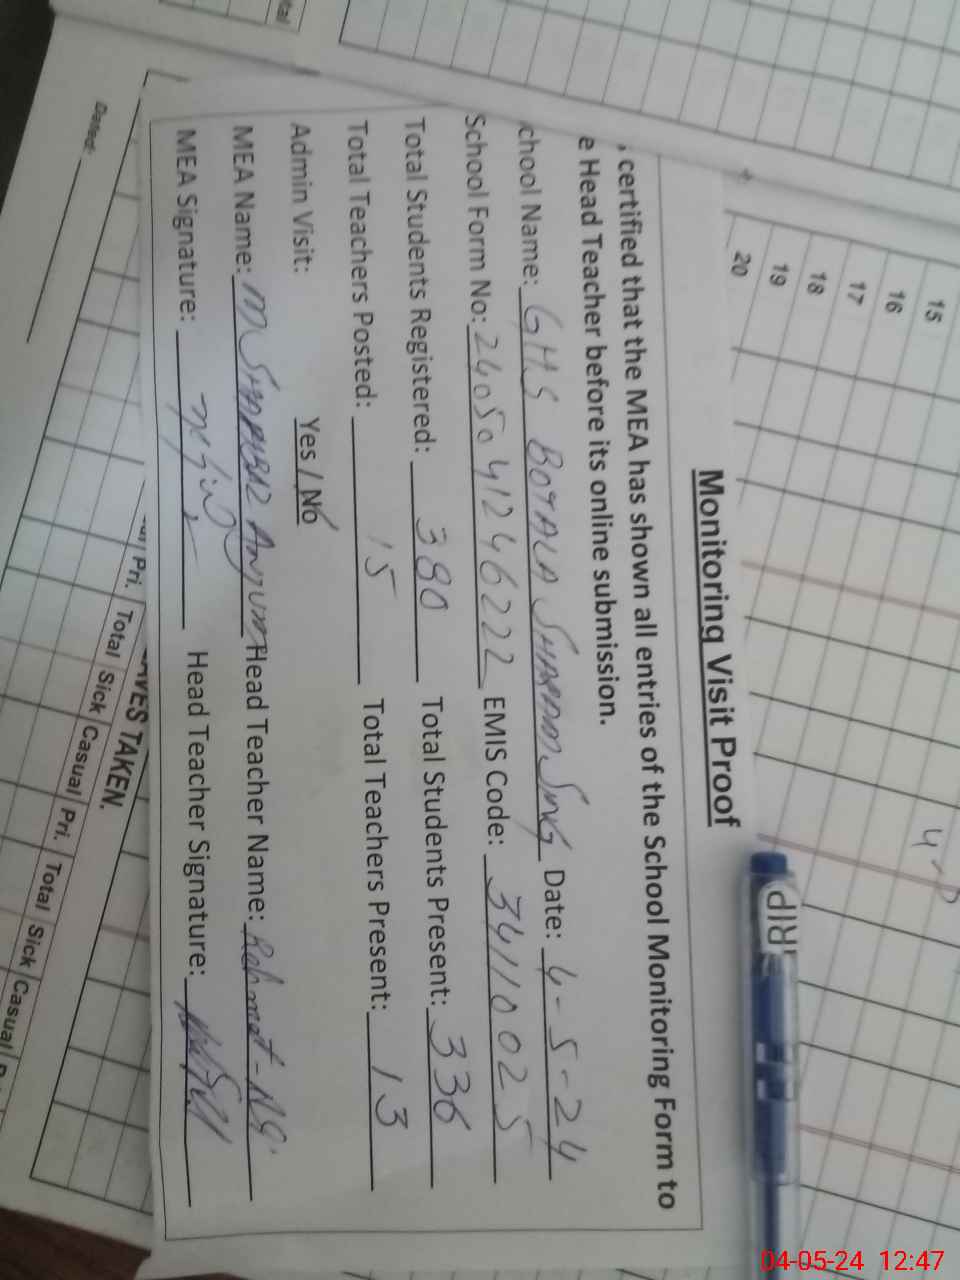 Monitoring Visit Proof
, certified that the MEA has shown all entries of the School Monitoring Form to
e Head Teacher before its online submission.
chool Name: GHS BOTALA SHARAM SING Date: 4-5-24
School Form No: 2405041246222 EMIS Code: 34110025
Total Students Registered: 380 Total Students Present: 336
Total Teachers Posted: 15 Total Teachers Present: 13
Admin Visit: Yes / No
MEA Name: Anjum Head Teacher Name: Rahmat-Ali
MEA Signature: Head Teacher Signature:
15
16
17
18
19
20
Dated:
AVES TAKEN.
Pri. Total Sick Casual Pri. Total Sick Casual
04-05-24 12:47